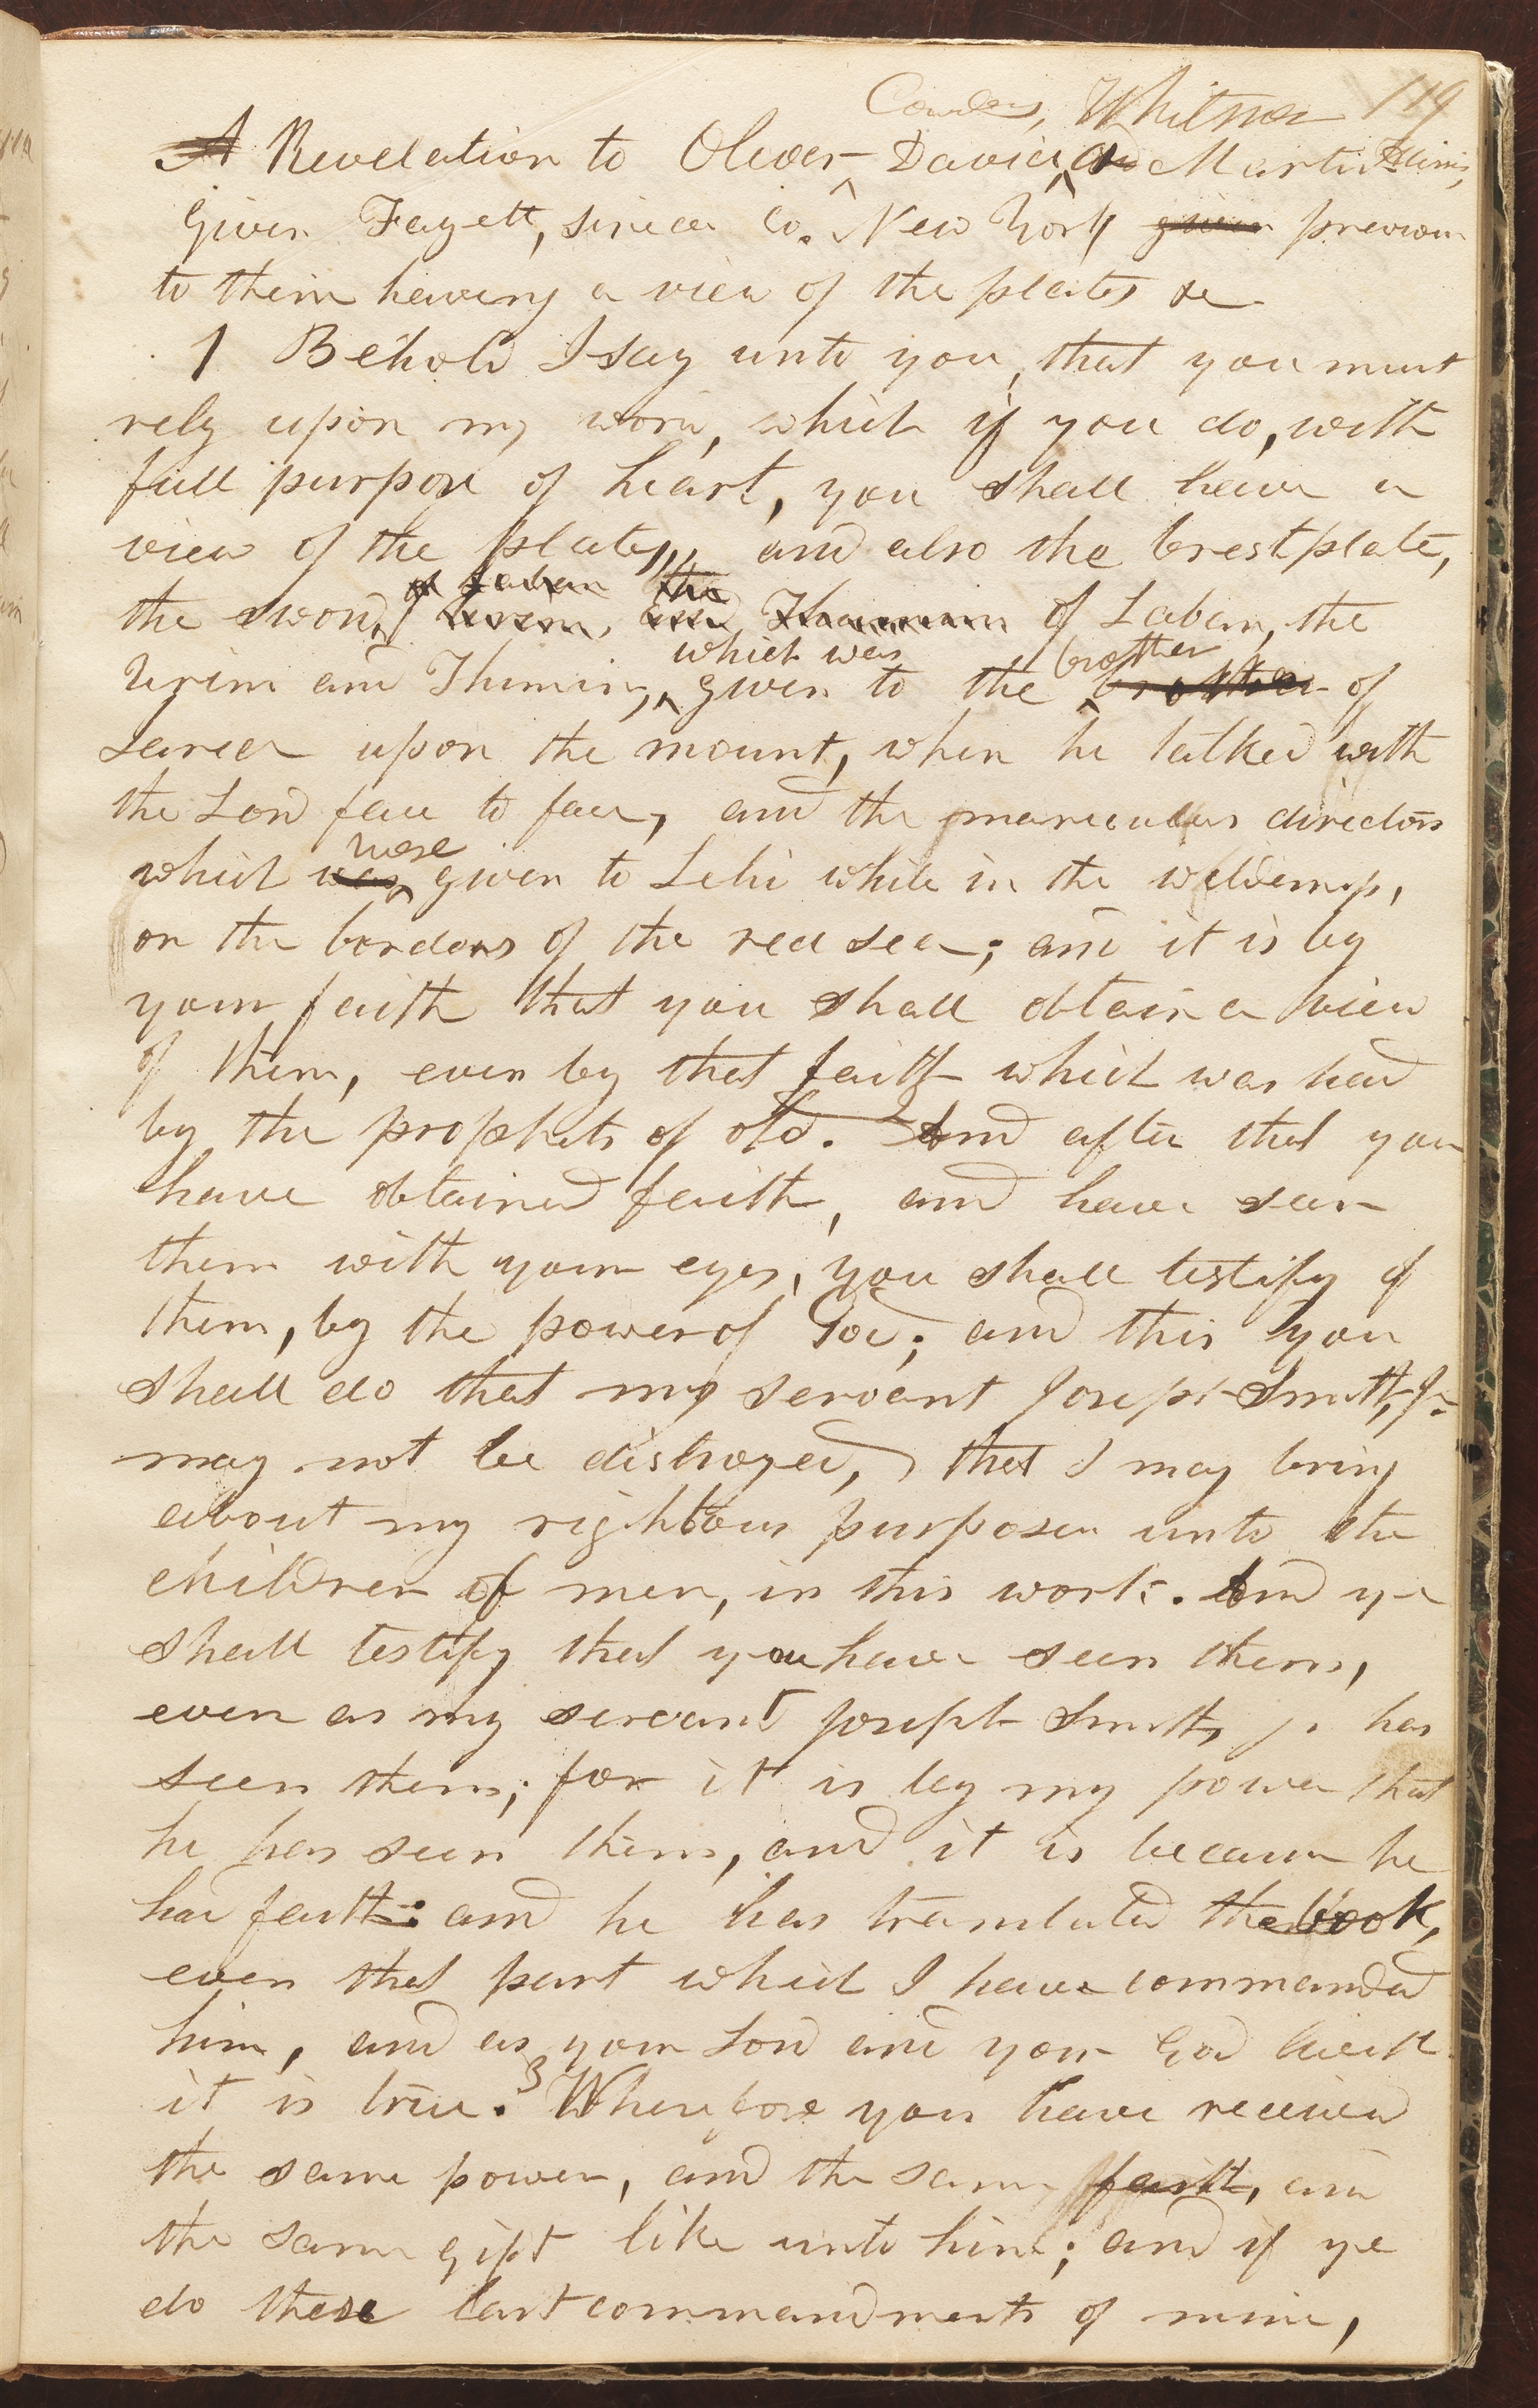 Cowdery, Whitmer 119
A Revelation to Oliver David and Martin Harris,
Given Fayett, seneca Co. New York given previous
to them haveing a view of the plates &c
1 Behold I say unto you, that you must
rely upon my word, which if you do, with
full purpose of heart, you shall have a
view of the plates, and also the brestplate,
of Laban the
the sword of Laban, the
which was brother
Urim and Thumim, given to the brother of
Jared upon the mount, when he talked with
the Lord face to face, and the marculus directors
were
which was given to Lehi while in the wilderness,
on the borders of the red sea; and it is by
your faith that you shall obtain a view
of them, even by that faith which was had
by the prophets of old. And after that you
have obtained faith, and have seen
them with your eyes, you shall testify of
them, by the power of God; and this you
shall do that my servant Joseph Smith, Jr.
may not be distroyed, that I may bring
about my righteous purposes unto the
children of men, in this work. And ye
shall testify that you have seen them,
even as my servant Joseph Smith jr has
seen them; for it is by my power that
he has seen them, and it is because he
had faith: and he has translated the book,
even that part which I have commanded
him, and as your Lord and your God liveth
3
it is true. Wherefore you have received
the same power, and the same faith, and
the same gift like unto him; and if ye
do these last commandments of mine,